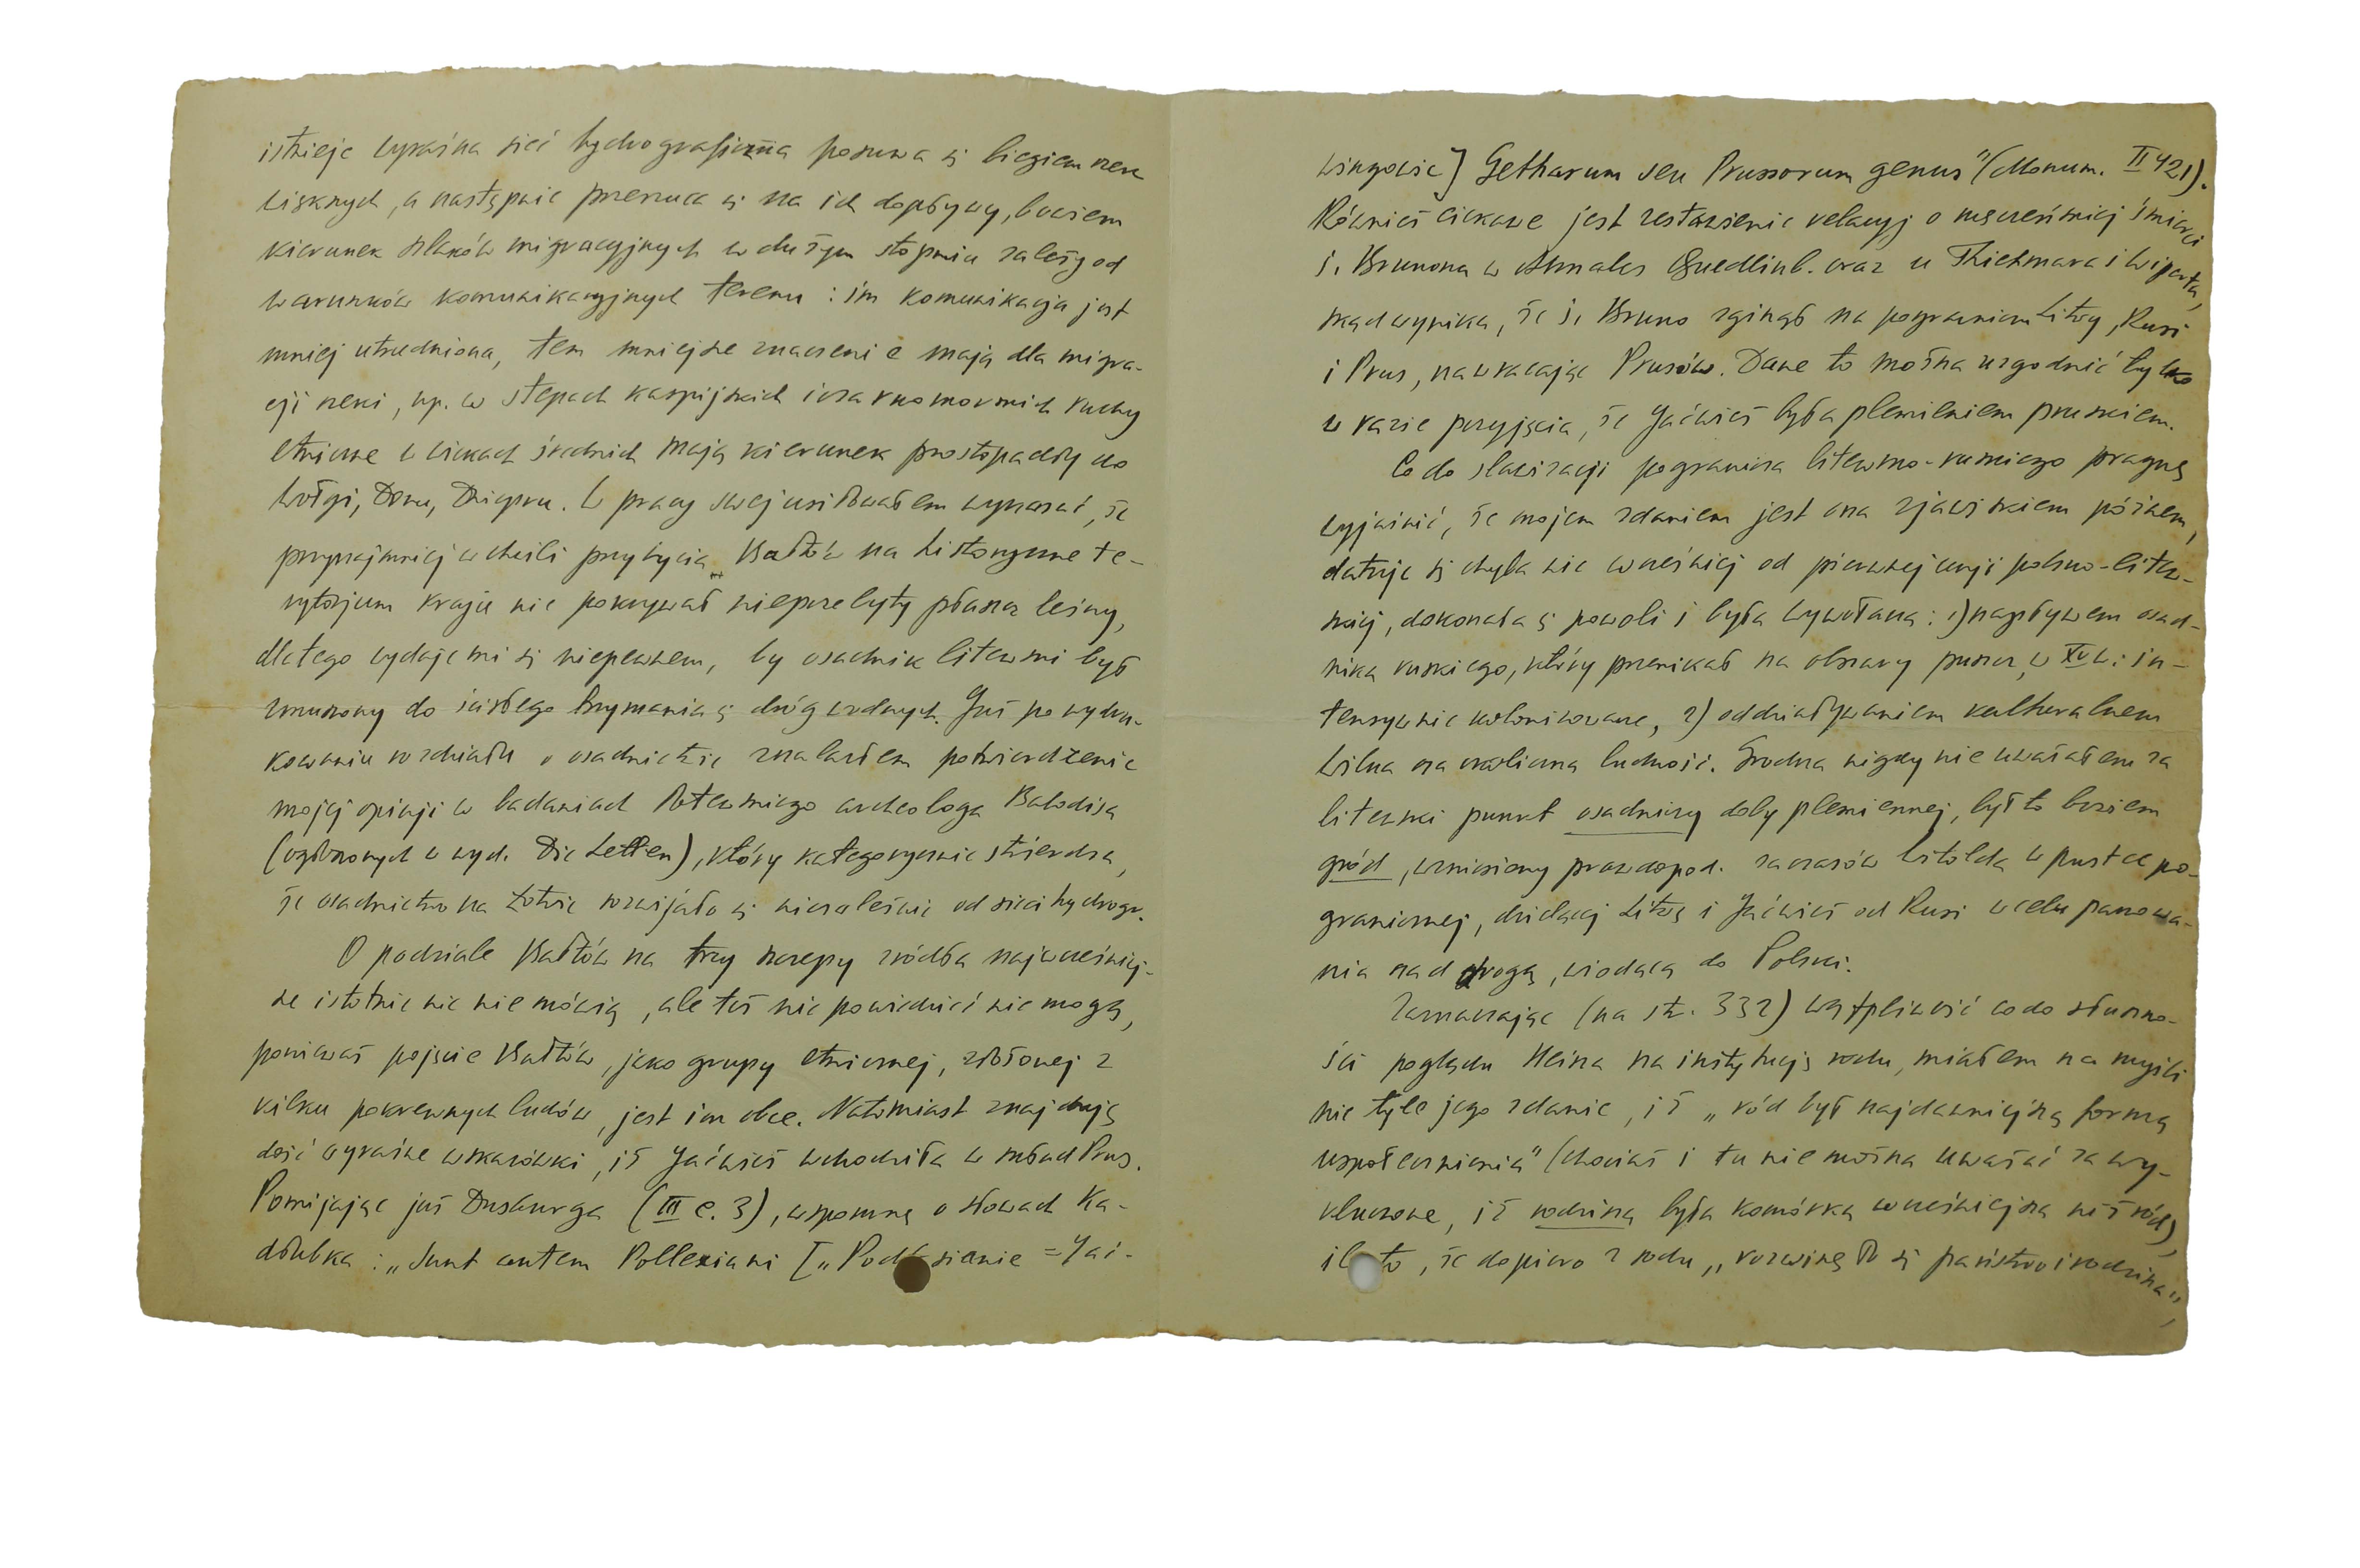 istnieje wyraźna sieć hydrograficzna posuwa się biegiem rzek
większych, a następnie przerzuca się na ich dopływy, bowiem
kierunek szlaków migracyjnych w dużym stopniu zależy od
warunków komunikacyjnych terenu: im komunikacja jest
mniej utrudniona, tem mniejsze znaczenie mają dla migra-
cji rzeki, np. w stepach kaspijskich i czarnomorskich ruchy
etniczne w wiekach średnich mają kierunek prostopadły do
Wołgi, Donu, Dniepru. W pracy swej usiłowałem wykazać, że
przynajmniej w chwili przybycia Bałtów na historyczne te-
rytorjum kraju nie pokrywał nieprzebyty płaszcz leśny,
dlatego wydaje mi się niepewnem, by osadnik litewski był
zmuszony do ścisłego trzymania się dróg wodnych. Już po wydru-
kowaniu rozdziału o osadnictwie znalazłem potwierdzenie
mojej opinji w badaniach łotewskiego archeologa Balodisa
(ogłoszonych w wyd. Die Letten), który kategorycznie stwierdza,
że osadnictwo na Łotwie rozwijało się niezależnie od sieci hydrogr.
O podziale Bałtów na trzy szczepy źródła najwcześniej-
sze istotnie nic nie mówią, ale też nic powiedzieć nie mogą,
ponieważ pojęcie Bałtów, jako grupy etnicznej, złożonej z
kilku pokrewnych ludów, jest im obce. Natomiast znajduję
dość wyraźne wskazówki, iż Jaćwież wchodziła w skład Prus.
Pomijając już Dusburga (III c. 3), wspomnę o słowach Ka-
dłubka: „Sunt autem Pollexiani [„Podlasianie = Jać-
wingowie] Getharum seu Prussorum genus" (Monum. II 421).
Również ciekawe jest zestawienie relacyj o męczeńskiej śmierci
ś. Brunona w Annales Quedlinb. oraz u Thietmara i Wiperta,
skąd wynika, że ś. Bruno zginął na pograniczu Litwy, Rusi
i Prus, nawracając Prusów. Dane te można uzgodnić tylko
w razie przyjęcia, że Jaćwież była plemieniem pruskiem.
Co do slawizacji pogranicza litewsko-ruskiego pragnę
wyjaśnić, że mojem zdaniem jest ona zjawiskiem późnem,
datuje się chyba nie wcześniej od pierwszej unji polsko-litew-
skiej, dokonała się powoli i była wywołana: 1) napływem osad-
nika ruskiego, który przenikał na obszary puszcz, w XV w. in-
tensywnie kolonizowane, 2) oddziaływaniem kulturalnem
Wilna na okoliczną ludność. Grodna nigdy nie uważałem za
litewski punkt osadniczy doby plemiennej, był to bowiem
gród, wzniesiony prawdopod. za czasów Witolda w pustce po-
granicznej, dzielącej Litwę i Jaćwież od Rusi w celu panowa-
nia nad drogą, wiodącą do Polski.
Zaznaczając (na str. 332) wątpliwość co do słuszno-
ści poglądu Heina na instytucję rodu, miałem na myśli
nie tyle jego zdanie, iż „ród był najdawniejszą formą
uspołecznienia" (chociaż i tu nie można uważać za wy-
kluczone, iż rodzina była komórką wcześniejszą niż ród),
ile to, że dopiero z rodu „rozwinęło się państwo i rodzina",